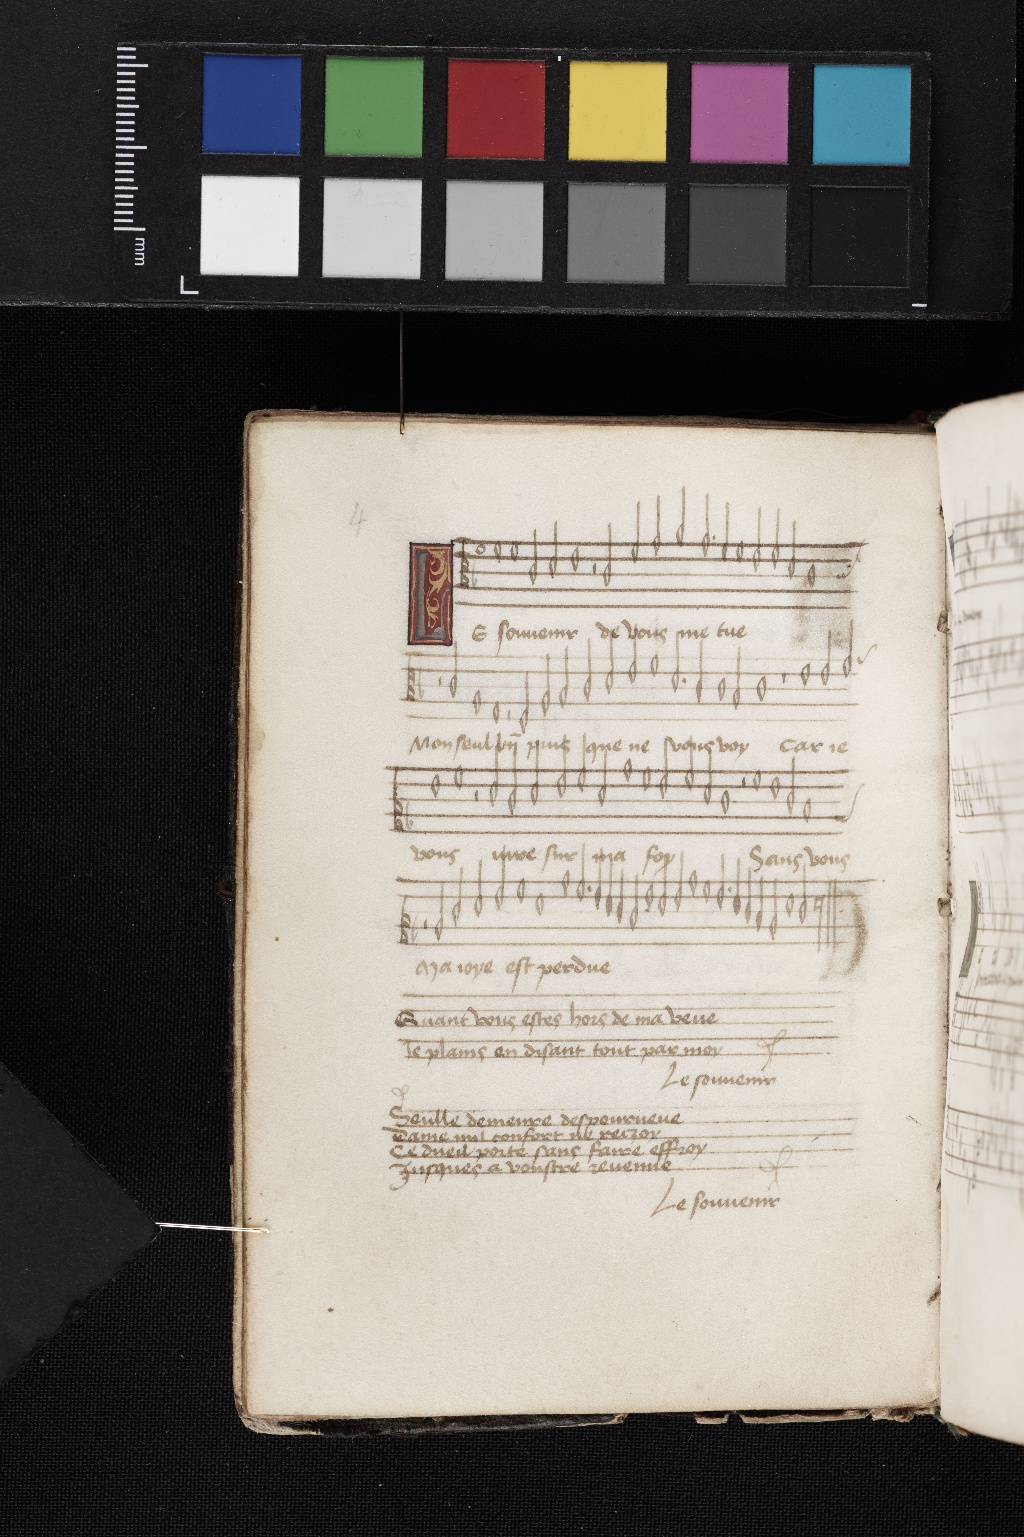 mm
4
LE souvenir de vous me tue
Mon seul bn̄ puis que ne vous voy Car ie
vous iure sur ma foy Sans vous
Ma ioye est perdue
Quant vous estes hors de ma veue
Ie plains en disant tout par moy
Le souvenir
Seulle demeure despourveue
Dame nul confort ne reczoy
Ce dueil porte sans faire effroy
Iusques a voustre revenue
Le souvenir